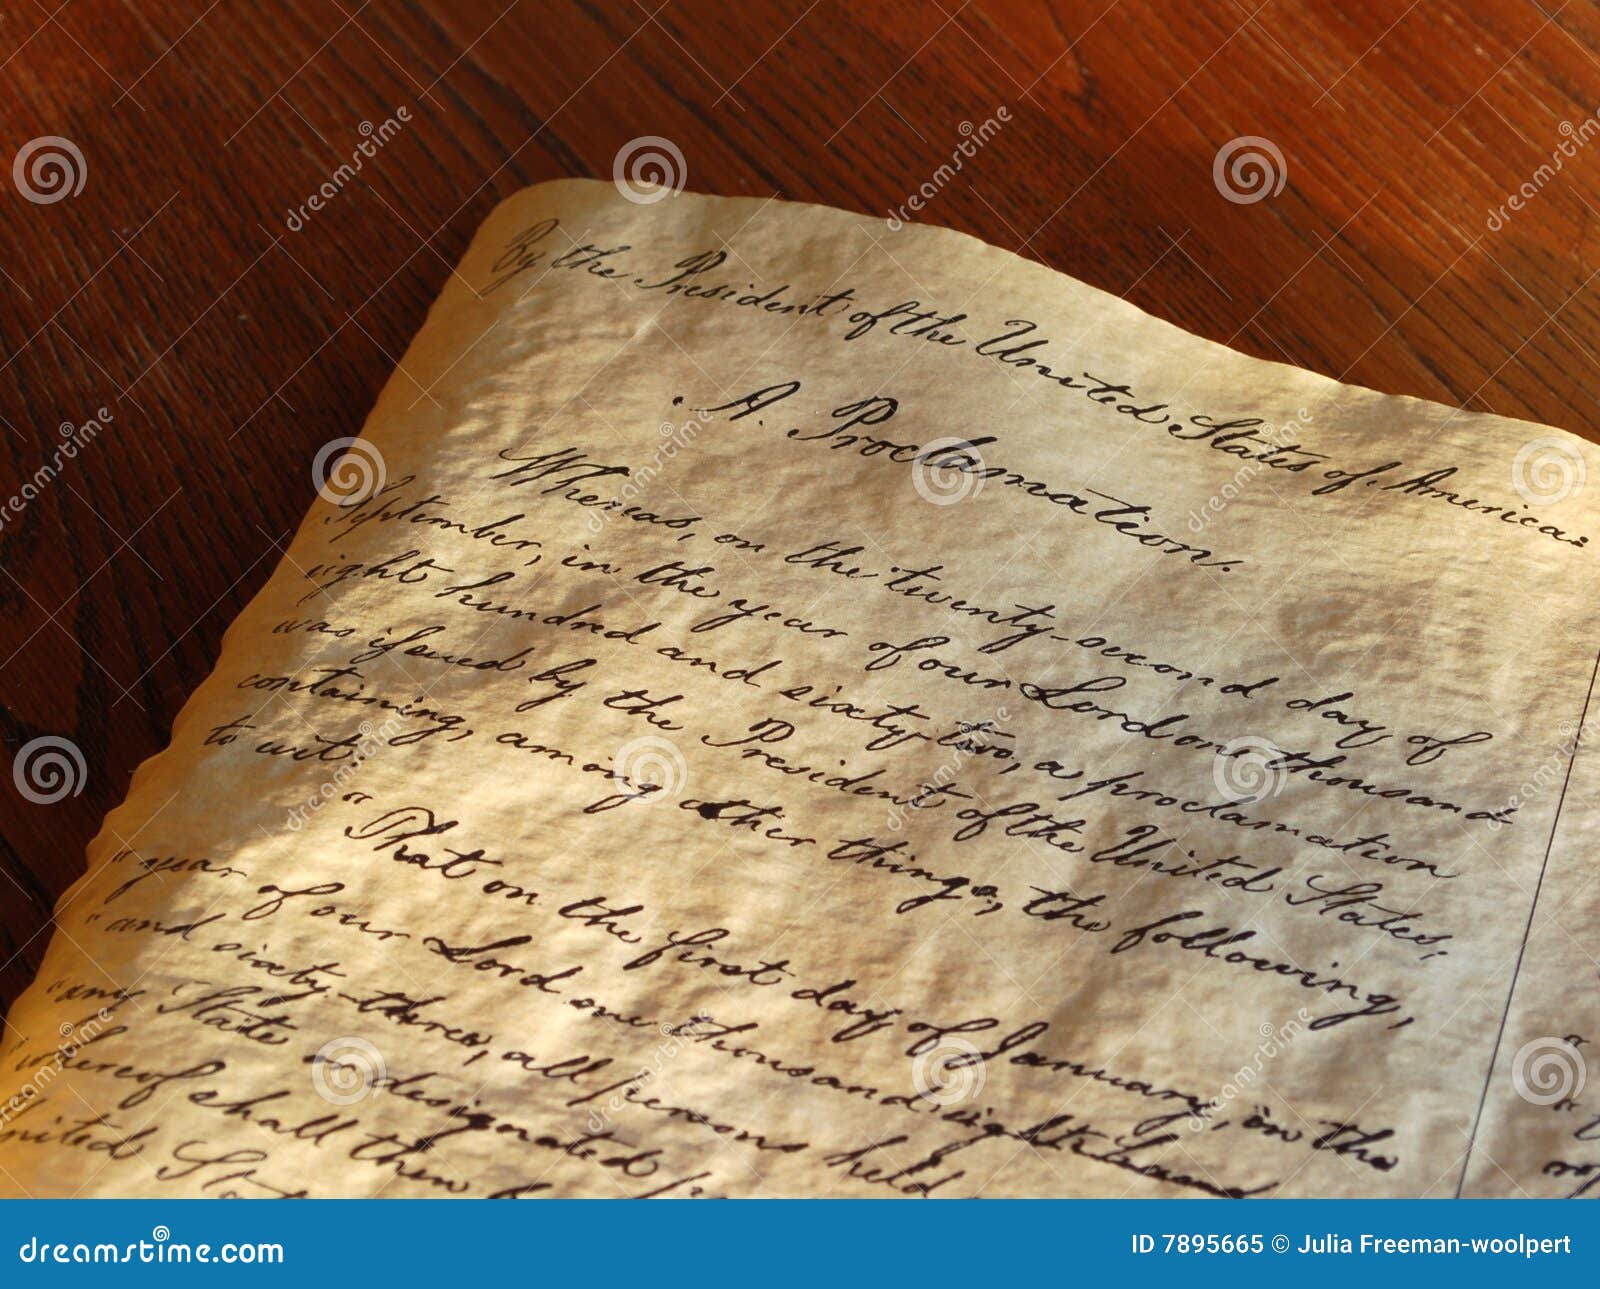 By the President of the United States of America:
A Proclamation.
Whereas, on the twenty-second day of
September, in the year of our Lord one thousand
eight hundred and sixty two, a proclamation
was issued by the President of the United States,
containing, among other things, the following,
to wit:
"That on the first day of January, in the
"year of our Lord one thousand eight hundred
"and sixty-three, all persons held
"any State or designated
"whereof shall then
United
dreamstime.com
ID 7895665 © Julia Freeman-woolpert